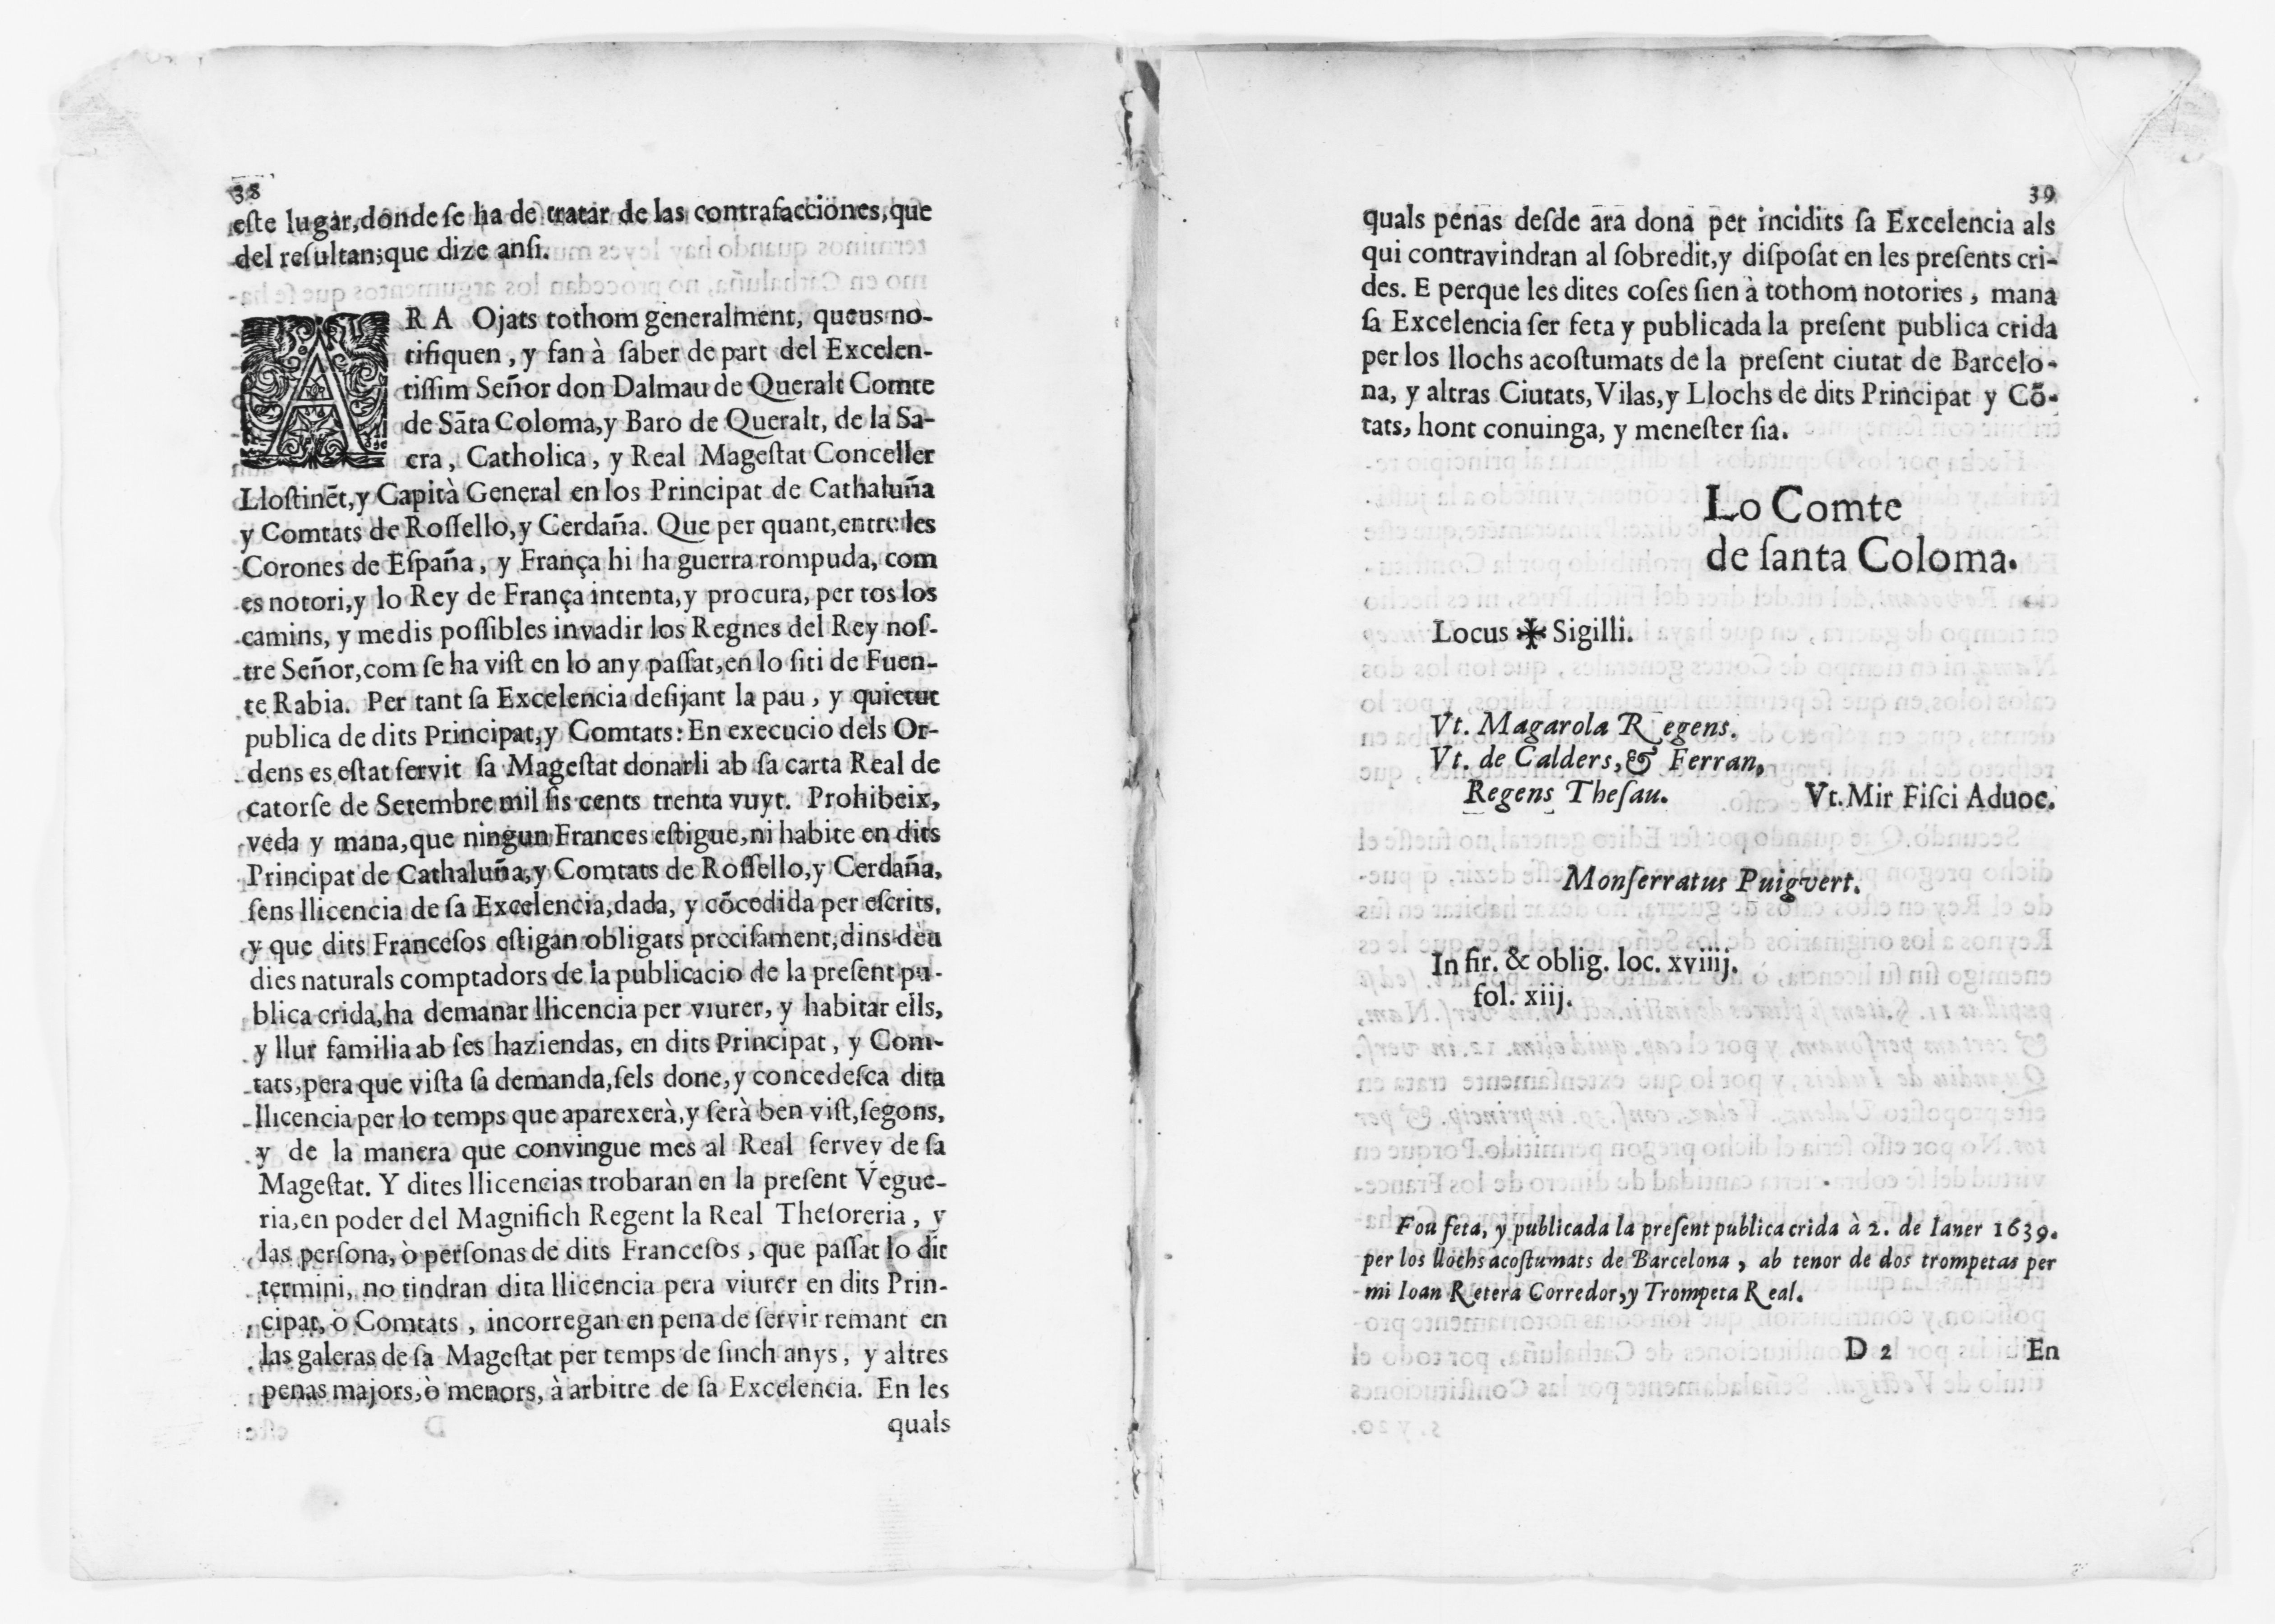 38
este lugar, donde se ha de tratar de las contrafacciones, que
del resultan; que dize ansi.
ARA Ojats tothom generalment, queus no-
tifiquen, y fan à saber de part del Excelen-
tissim Señor don Dalmau de Queralt Comte
de Sāta Coloma, y Baro de Queralt, de la Sa-
cra, Catholica, y Real Magestat Conceller
Llostinēt, y Capità General en los Principat de Cathaluña
y Comtats de Rossello, y Cerdaña. Que per quant, entre les
Corones de España, y França hi ha guerra rompuda, com
es notori, y lo Rey de França intenta, y procura, per tos los
camins, y medis possibles invadir los Regnes del Rey nos-
tre Señor, com se ha vist en lo any passat, en lo siti de Fuen-
te Rabia. Per tant sa Excelencia desijant la pau, y quietut
publica de dits Principat, y Comtats: En execucio dels Or-
dens es estat servit sa Magestat donarli ab sa carta Real de
catorse de Setembre mil sis cents trenta vuyt. Prohibeix,
veda y mana, que ningun Frances estigue, ni habite en dits
Principat de Cathaluña, y Comtats de Rossello, y Cerdaña,
sens llicencia de sa Excelencia, dada, y cōcedida per escrits,
y que dits Francesos estigan obligats precisament, dins dèu
dies naturals comptadors de la publicacio de la present pu-
blica crida, ha demanar llicencia per viurer, y habitar ells,
y llur familia ab ses haziendas, en dits Principat, y Com-
tats, pera que vista sa demanda, sels done, y concedesca dita
llicencia per lo temps que aparexerà, y serà ben vist, segons,
y de la manera que convingue mes al Real servey de sa
Magestat. Y dites llicencias trobaran en la present Vegue-
ria, en poder del Magnifich Regent la Real Thesoreria, y
las persona, ò personas de dits Francesos, que passat lo dit
termini, no tindran dita llicencia pera viurer en dits Prin-
cipat, o Comtats, incorregan en pena de servir remant en
las galeras de sa Magestat per temps de sinch anys, y altres
penas majors, ò menors, à arbitre de sa Excelencia. En les
quals
39
quals penas desde ara dona per incidits sa Excelencia als
qui contravindran al sobredit, y disposat en les presents cri-
des. E perque les dites coses sien à tothom notories, mana
sa Excelencia ser feta y publicada la present publica crida
per los llochs acostumats de la present ciutat de Barcelo-
na, y altras Ciutats, Vilas, y Llochs de dits Principat y Cō-
tats, hont conuinga, y menester sia.
Lo Comte
de santa Coloma.
Locus ✠ Sigilli.
Vt. Magarola Regens.
Vt. de Calders, & Ferran,
Regens Thesau. Vt. Mir Fisci Aduoc.
Monserratus Puigvert.
In fir. & oblig. loc. xviiij.
fol. xiij.
Fou feta, y publicada la present publica crida à 2. de Ianer 1639.
per los llochs acostumats de Barcelona, ab tenor de dos trompetas per
mi Ioan Retera Corredor, y Trompeta Real.
D 2 En